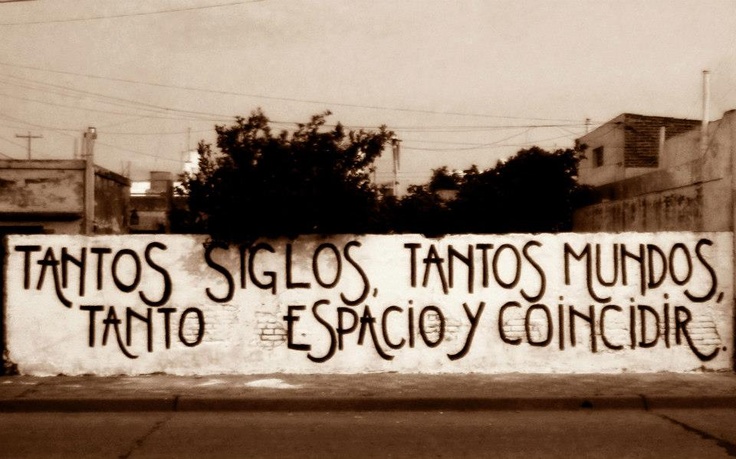 TANTOS SIGLOS, TANTOS MUNDOS,
TANTO ESPACIO Y COINCIDIR.